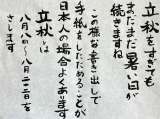 立秋をすぎても
まだまだ暑い日が
続きますね
この様な書き出して
手紙をしたためることが
日本人の場合よくあります
立秋は
八月八日〜八月二十二日を
さします